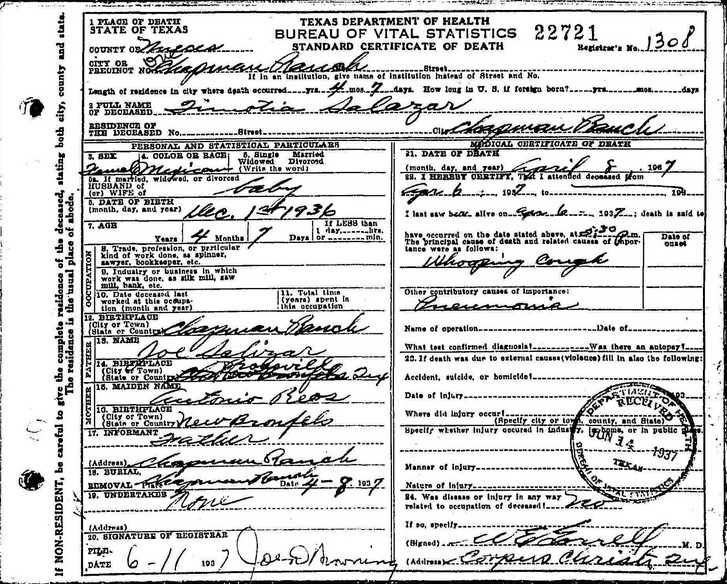 If NON-RESIDENT, be careful to give the complete residence of the deceased, stating both city, county and state.
The residence is the usual place of abode.
1 PLACE OF DEATH
STATE OF TEXAS
TEXAS DEPARTMENT OF HEALTH
BUREAU OF VITAL STATISTICS
STANDARD CERTIFICATE OF DEATH
22721
Registrar's No. 1308
COUNTY OF Nueces
CITY OR
PRECINCT NO. Chapman Ranch Street
If in an institution, give name of institution instead of Street and No.
Length of residence in city where death occurred yrs. 4 mos. 7 days. How long in U. S. if foreign born? yrs. mos. days
2 FULL NAME
OF DECEASED Timotia Salazar
RESIDENCE OF
THE DECEASED No. Street City Chapman Ranch
PERSONAL AND STATISTICAL PARTICULARS
3. SEX 4. COLOR OR RACE 5. Single Married
Widowed Divorced
(Write the word)
Female Mexican
5a. If married, widowed, or divorced
HUSBAND OF
(or) WIFE of baby
6. DATE OF BIRTH
(month, day, and year) Dec. 1st 1936
7. AGE If LESS than
1 day, hrs.
Years 4 Months 7 Days or min.
OCCUPATION
8. Trade, profession, or particular
kind of work done, as spinner,
sawyer, bookkeeper, etc.
9. Industry or business in which
work was done, as silk mill, saw
mill, bank, etc.
10. Date deceased last
worked at this occupa-
tion (month and year)
11. Total time
(years) spent in
this occupation
12. BIRTHPLACE
(City or Town)
(State or Country) Chapman Ranch
FATHER
13. NAME
Joe Salizar
14. BIRTHPLACE
(City or Town)
(State or Country) Tex
MOTHER
15. MAIDEN NAME
Antonio Reos
16. BIRTHPLACE
(City or Town)
(State or Country) New Bronfels
17. INFORMANT
Father
(Address) Chapman Ranch
18. BURIAL,
REMOVAL Place Chapman Ranch Date 4-8 1937
19. UNDERTAKER
None
(Address)
20. SIGNATURE OF REGISTRAR
FILE
DATE 6-11 1937 Joe D Browning
MEDICAL CERTIFICATE OF DEATH
21. DATE OF DEATH
(month, day, and year) April 8, 1937
22. I HEREBY CERTIFY, That I attended deceased from
Apr 6 1937 to 193
I last saw her alive on Apr 6 1937; death is said to
have occurred on the date stated above, at 5:30 m.
The principal cause of death and related causes of impor-
tance were as follows:
Date of
onset
Whooping Cough
Other contributory causes of importance:
Pneumonia
Name of operation Date of
What test confirmed diagnosis? Was there an autopsy?
23. If death was due to external causes (violence) fill in also the following:
Accident, suicide, or homicide?
Date of injury 193
Where did injury occur?
(Specify city or town, county, and State)
Specify whether injury occured in industry, in home, or in public place.
Manner of injury
Nature of injury
24. Was disease or injury in any way
related to occupation of deceased? no
If so, specify
(Signed) M. D.
(Address) Corpus Christi Tex
DEPARTMENT OF HEALTH
RECEIVED
JUN 14 1937
TEXAS
BUREAU OF VITAL STATISTICS